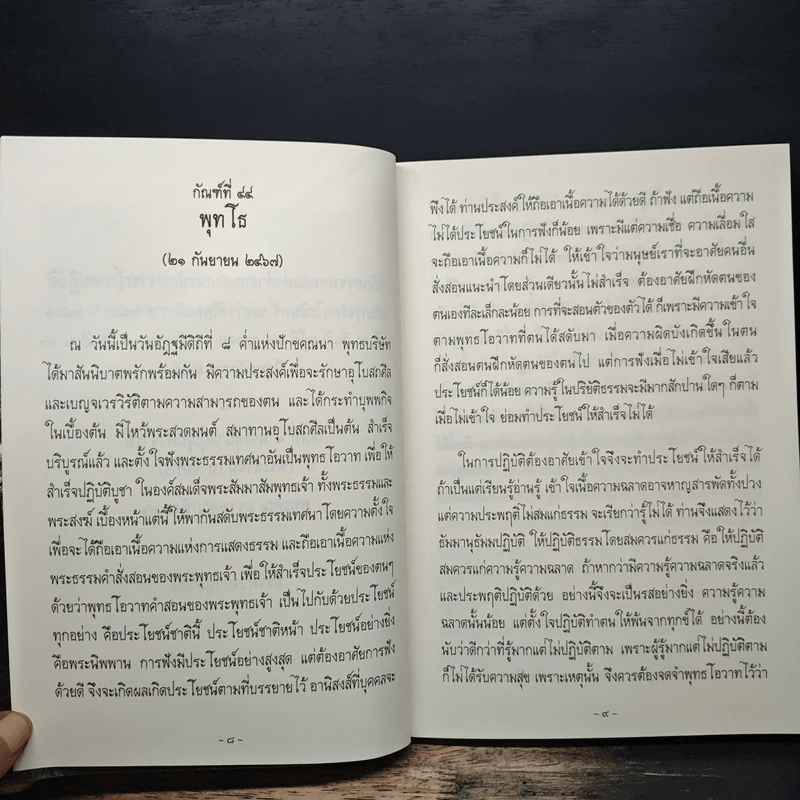 กัณฑ์ที่ ๔๔
พุทโธ
(๒๑ กันยายน ๒๔๖๗)
ณ วันนี้เป็นวันอัฏฐมีดิถีที่ ๘ ค่ำแห่งปักขคณนา พุทธบริษัท
ได้มาสันนิบาตพรักพร้อมกัน มีความประสงค์เพื่อจะรักษาอุโบสถศีล
และเบญจเวรวิรัติตามความสามารถของตน และได้กระทำบุพพกิจ
ในเบื้องต้น มีไหว้พระสวดมนต์ สมาทานอุโบสถศีลเป็นต้น สำเร็จ
บริบูรณ์แล้ว และตั้งใจฟังพระธรรมเทศนาอันเป็นพุทธโอวาท เพื่อให้
สำเร็จปฏิบัติบูชา ในองค์สมเด็จพระสัมมาสัมพุทธเจ้า ทั้งพระธรรมและ
พระสงฆ์ เบื้องหน้าแต่นี้ให้พากันสดับพระธรรมเทศนาโดยความตั้งใจ
เพื่อจะได้ถือเอาเนื้อความแห่งการแสดงธรรม และถือเอาเนื้อความแห่ง
พระธรรมคำสั่งสอนของพระพุทธเจ้า เพื่อให้สำเร็จประโยชน์ของตนๆ
ด้วยว่าพุทธโอวาทคำสอนของพระพุทธเจ้า เป็นไปกับด้วยประโยชน์
ทุกอย่าง คือประโยชน์ชาตินี้ ประโยชน์ชาติหน้า ประโยชน์อย่างยิ่ง
คือพระนิพพาน การฟังมีประโยชน์อย่างสูงสุด แต่ต้องอาศัยการฟัง
ด้วยดี จึงจะเกิดผลเกิดประโยชน์ตามที่บรรยายไว้ อานิสงส์ที่บุคคลจะ
~ ๘ ~
พึงได้ ท่านประสงค์ให้ถือเอาเนื้อความได้ด้วยดี ถ้าฟัง แต่ถือเนื้อความ
ไม่ได้ประโยชน์ในการฟังก็น้อย เพราะมีแต่ความเชื่อ ความเลื่อมใส
จะถือเอาเนื้อความก็ไม่ได้ ให้เข้าใจว่ามนุษย์เราที่จะอาศัยคนอื่น
สั่งสอนแนะนำโดยส่วนเดียวนั้นไม่สำเร็จ ต้องอาศัยฝึกหัดตนของ
ตนเองทีละเล็กละน้อย การที่จะสอนตัวของตัวได้ ก็เพราะมีความเข้าใจ
ตามพุทธโอวาทที่ตนได้สดับมา เมื่อความผิดบังเกิดขึ้นในตน
ก็สั่งสอนตนฝึกหัดตนของตนไป แต่การฟังเมื่อไม่เข้าใจเสียแล้ว
ประโยชน์ก็ได้น้อย ความรู้ในปริยัติธรรมจะมีมากสักปานใดๆ ก็ตาม
เมื่อไม่เข้าใจ ย่อมทำประโยชน์ให้สำเร็จไม่ได้
ในการปฏิบัติต้องอาศัยเข้าใจจึงจะทำประโยชน์ให้สำเร็จได้
ถ้าเป็นแต่เรียนรู้อ่านรู้ เข้าใจเนื้อความฉลาดอาจหาญสารพัดทั้งปวง
แต่ความประพฤติไม่สมแก่ธรรม จะเรียกว่ารู้ไม่ได้ ท่านจึงแสดงไว้ว่า
ธัมมานุธัมมปฏิบัติ ให้ปฏิบัติธรรมโดยสมควรแก่ธรรม คือให้ปฏิบัติ
สมควรแก่ความรู้ความฉลาด ถ้าหากว่ามีความรู้ความฉลาดจริงแล้ว
และประพฤติปฏิบัติด้วย อย่างนี้จึงจะเป็นรสอย่างยิ่ง ความรู้ความ
ฉลาดนั้นน้อย แต่ตั้งใจปฏิบัติทำตนให้พ้นจากทุกข์ได้ อย่างนี้ต้อง
นับว่าดีกว่าที่รู้มากแต่ไม่ปฏิบัติตาม เพราะผู้รู้มากแต่ไม่ปฏิบัติตาม
ก็ไม่ได้รับความสุข เพราะเหตุนั้น จึงควรต้องจดจำพุทธโอวาทไว้ว่า
~ ๙ ~